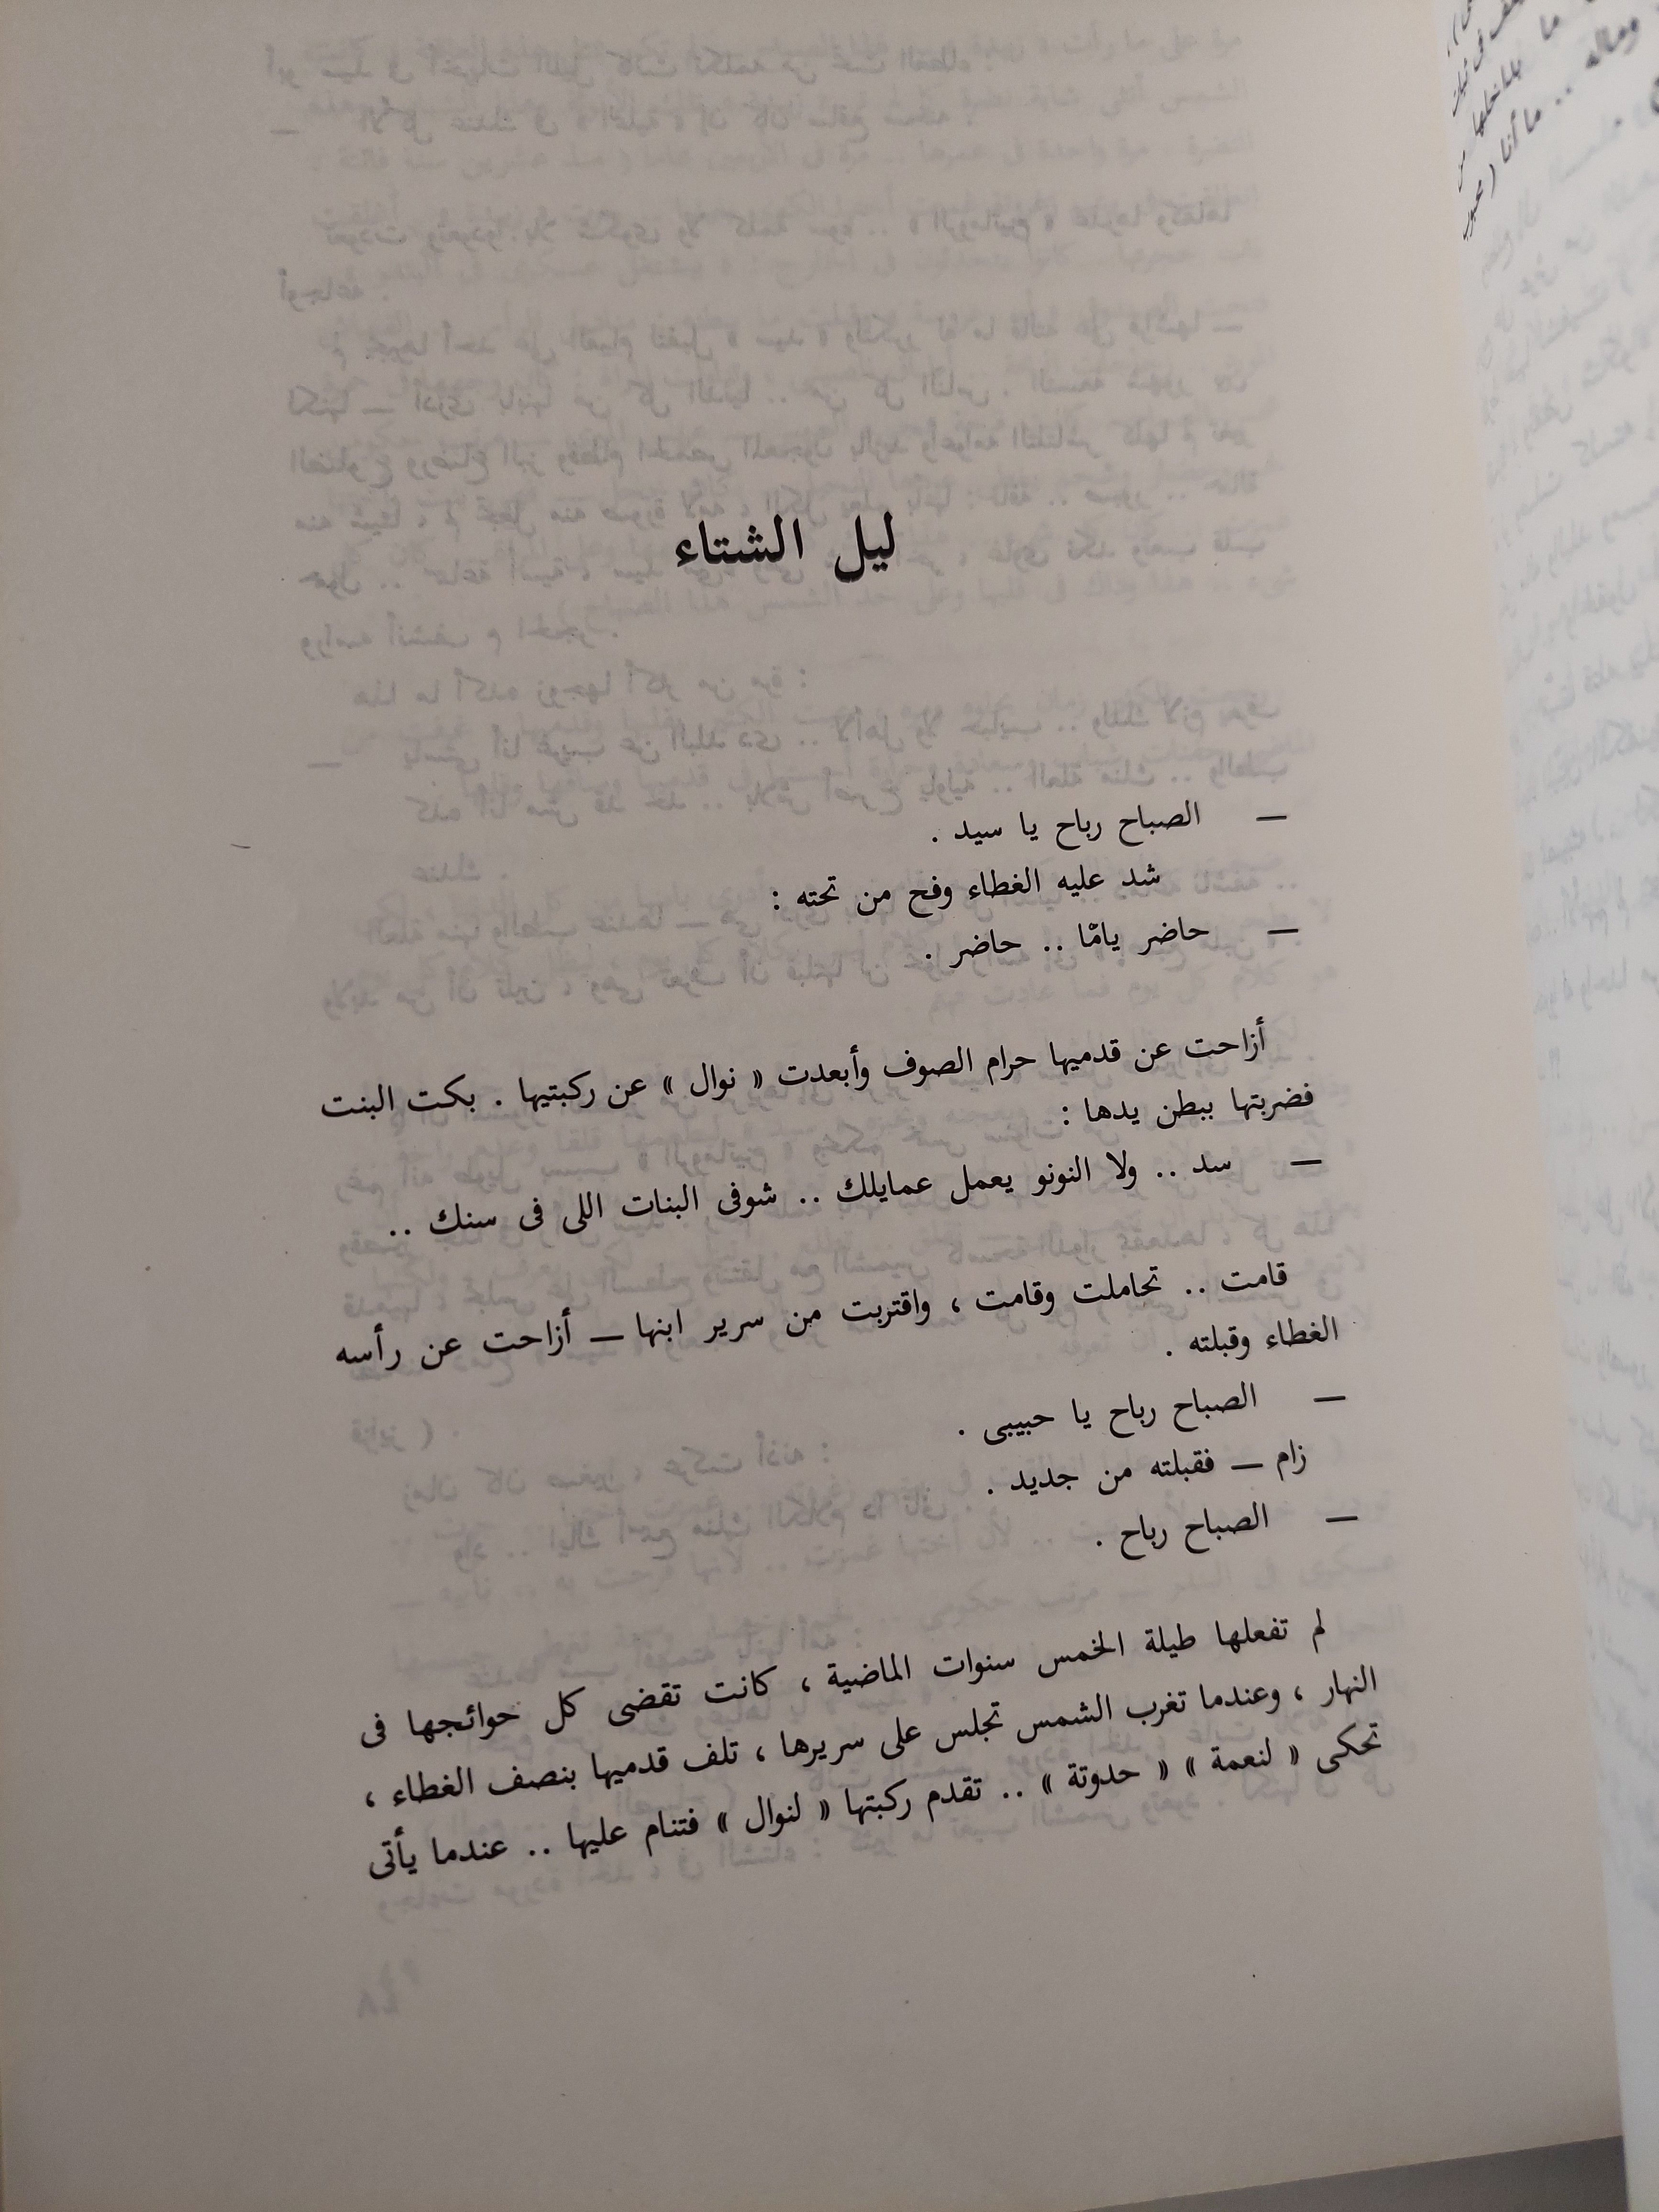 ليل الشتاء
— الصباح رباح يا سيد .
شد عليه الغطاء وفح من تحته :
— حاضر يامّا .. حاضر .
أزاحت عن قدميها حرام الصوف وأبعدت « نوال » عن ركبتيها . بكت البنت
فضربتها ببطن يدها :
— سد .. ولا النونو يعمل عمايلك .. شوفى البنات اللى فى سنك ..
قامت .. تحاملت وقامت ، واقتربت من سرير ابنها — أزاحت عن رأسه
الغطاء وقبلته .
— الصباح رباح يا حبيبى .
زام — فقبلته من جديد .
— الصباح رباح .
لم تفعلها طيلة الخمس سنوات الماضية ، كانت تقضى كل حوائجها فى
النهار ، وعندما تغرب الشمس تجلس على سريرها ، تلف قدميها بنصف الغطاء ،
تحكى « لنعمة » « حدوتة » .. تقدم ركبتها « لنوال » فتنام عليها .. عندما يأتى